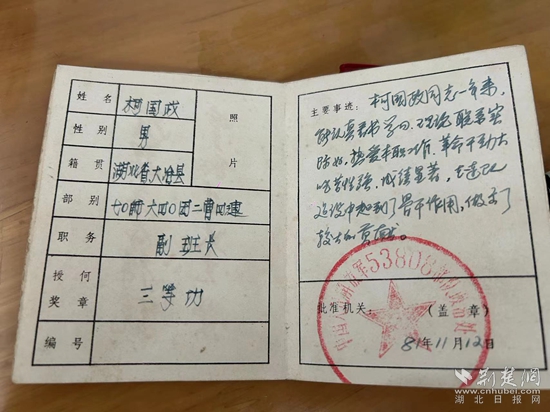 姓名 柯国政 照片
性别 男
籍贯 湖北省大冶县
部别 七0师六四0团二营四连
职务 副班长
授何奖章 三等功
编号
主要事迹：柯国政同志一年来，
能认真看书学习，理论联系实
际好，热爱本职工作，革命干劲大
成绩显著，在连队
建设中起到了骨干作用，做出了
较大的贡献。
53808
批准机关： （盖章）
81年11月12日
荆楚网
www.cnhubei.com
湖北日报网